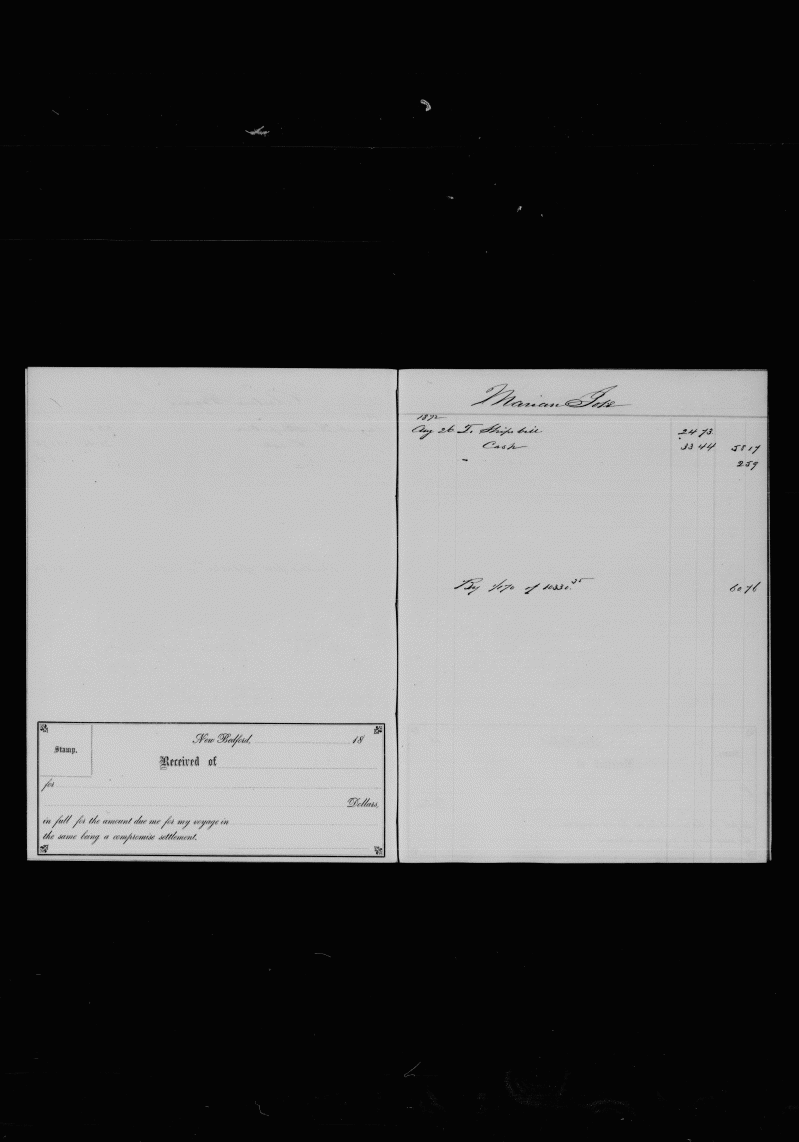 Stamp.
New Bedford, 18
Received of
for
Dollars,
in full for the amount due me for my voyage in
the same being a compromise settlement.
Marian Jose
1872
Aug 26 To Ships bill 24 73
Cash 33 44 58 17
2 59
By of 60 76